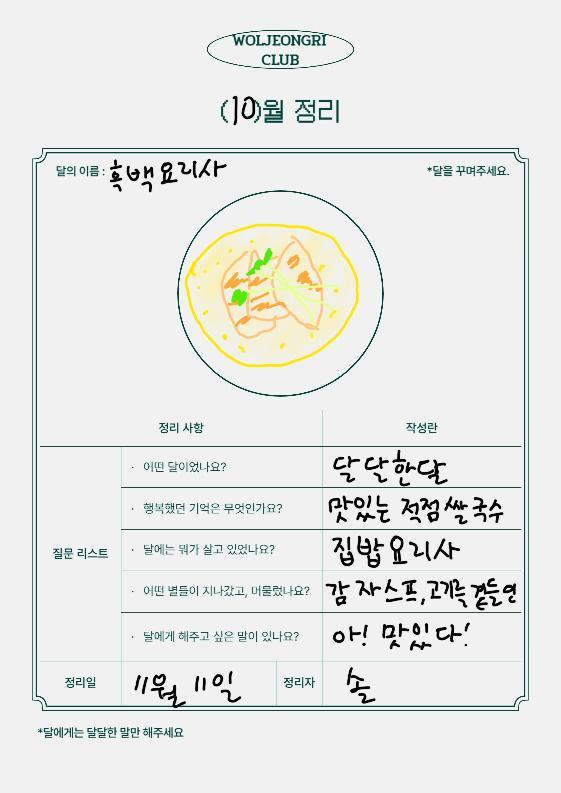 WOLJEONGRI
CLUB
(10)월 정리
달의 이름 : 흑백요리사
*달을 꾸며주세요.
정리 사항 작성란
질문 리스트
· 어떤 달이었나요? 달달한달
· 행복했던 기억은 무엇인가요? 맛있는 적점쌀국수
· 달에는 뭐가 살고 있었나요? 집밥요리사
· 어떤 별들이 지나갔고, 머물렀나요? 감자스프, 고기를 곁들인
· 달에게 해주고 싶은 말이 있나요? 아! 맛있다!
정리일 11월 11일 정리자 솔
*달에게는 달달한 말만 해주세요